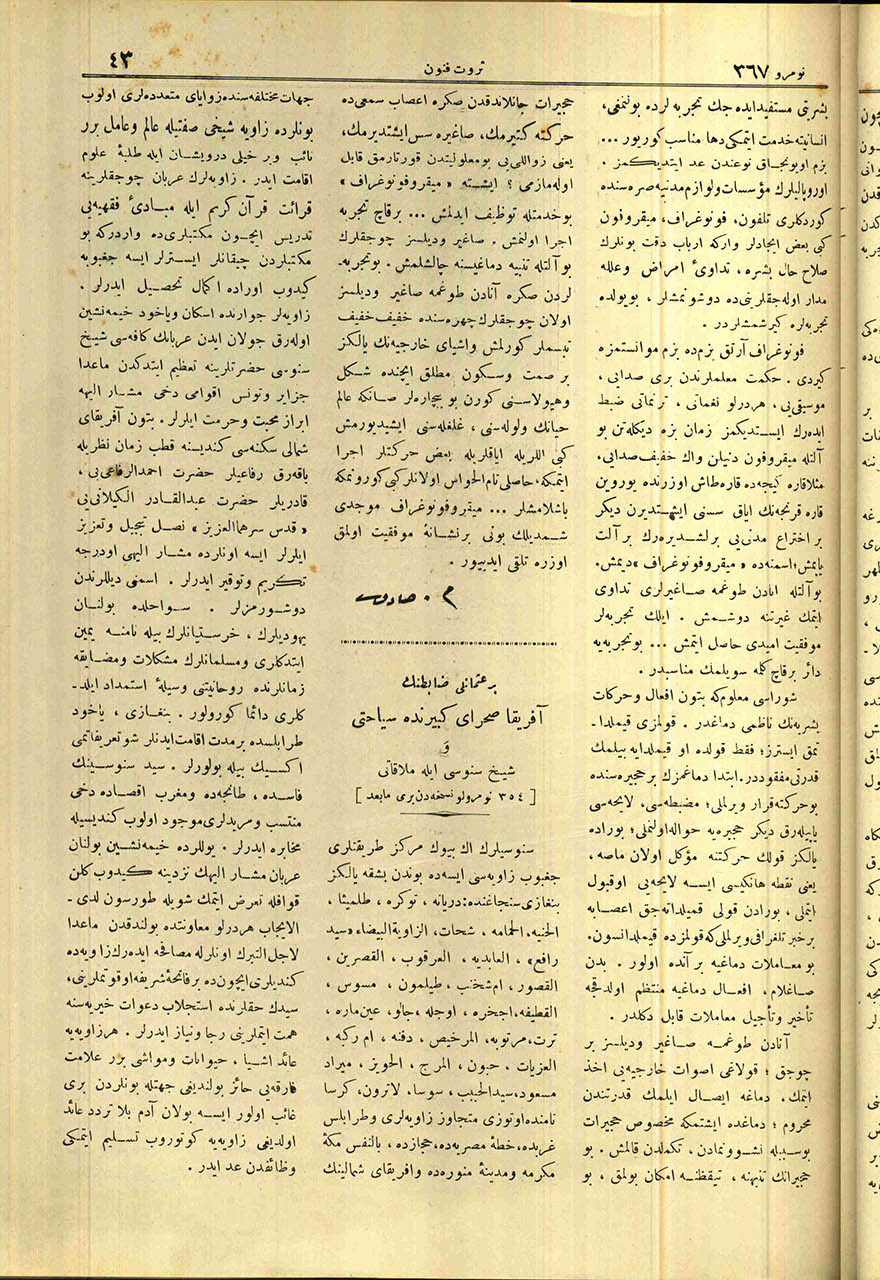 نومرو ٣٦٧
ثروت فنون
٤٣
بشریتی مستفید ایده‌جك تجربه‌لرده بولنمغی،
انسانیته خدمت ایتمكی دها مناسب كوریور ...
بزم اویونجاق نوعندن عد ایتدیكمز .
اوروپالیلرك مؤسسات ولوازم مدنیه صره‌سنده
كوردكلری تلفون، فونوغراف، میقروفون
كبی بعض ایجادلر واركه ارباب دقت بونلرك
صلاح حال بشره، تداوئ امراض وعلله
مدار اوله‌جقلرینی‌ده دوشونمشلر، بویولده
تجربه‌لره كیرشمشلردر .
فونوغراف آرتق بزم‌ده بزم موانستمزه
كیردی . حكمت معلملرندن بری صدایی،
موسیقی‌یی، هردرلو نغماتی، ترنماتی ضبط
ایده‌رك ایستدیكمز زمان بزه دیكله‌تن بو
آلتله میقروفون دنیلن واك خفیف صدایی،
مثلا قاره كیجه‌ده قاره‌طاش اوزرنده یوروین
قاره قرنجه‌نك ایاق سسنی ایشیتدیرن دیكر
بر اختراع مدنی‌یی برلشدیره‌رك بر آلت
یاپمش؛ اسمنه‌ده « میقروفونوغراف » دیمش.
بو آلتله آنادن طوغمه صاغیرلری تداوی
ایتمك غیرتنه دوشمش . ایلك تجربه‌لر
موفقیت امیدی حاصل ایتمش ... بوتجربه‌یه
دائر برقاچ كلمه سویلمك مناسبدر .
شوراسی معلومكه بتون افعال وحركات
بشریه‌نك ناظمی دماغدر . قولمزی قیملدا-
تمق ایسترز؛ فقط قولده او قیملدایه بیلمك
قدرتی مفقوددر. ابتدا دماغمزك برحجیره‌سنده
بوحركته قرار ویرملی؛ مضبطه‌سی، لایحه‌سی
یاپیله‌رق دیكر حجیره‌یه حواله اولنملی؛ بوراده
یالكز قولك حركتنه مؤكل اولان ماصه،
یعنی نقطه هانكیسی ایسه لایحه‌یی اوقبول
ایتملی، بورادن قولی قمیلداته‌جق اعصابه
برخبر تلغرافی ویرملی كه قولمزده قیملدانسون.
بو معاملات دماغیه برآنده اولور . بدن
صاغلام، افعال دماغیه منتظم اولدقجه
تأخیر وتأجیل معاملات قابل دكلدر .
آنادن طوغمه صاغیر ودیلسز بر
چوجق ؛ قولاغی اصوات خارجیه‌یی اخذ
ایتمك، دماغه ایصال ایلمك قدرتندن
محروم ؛ دماغده ایشتمكه مخصوص حجیرات
بوسببله نشوونمادن، تكملدن قالمش . بو
حجیراتك تنبهنه، تیقظنه امكان بولمق، بو
حجیرات جانلاندقدن صكره اعصاب سمعی‌ده
حركته كتیرمك، صاغیره سس ایشتدیرمك،
یعنی زواللی‌یی بو معلولیتدن قورتارمق قابل
اوله‌مازمی ؟ ایشته « میقروفونوغراف »
بوخدمتله توظیف ایدلمش ... برقاچ تجربه
اجرا اولنمش . صاغیر ودیلسز چوجقلرك
بو آلتله تنبیه دماغیسنه چالشلمش . بوتجربه-
لردن صكره آنادن طوغمه صاغیر ودیلسز
اولان چوجقلرك چهره‌سنده خفیف خفیف
تبسملر كورلمش واشیای خارجیه‌نك یالكز
بر صمت وسكون مطلق ایچنده شكل
وهیولاسنی كورن بو بیچاره‌لر صانكه عالم
حیاتك ولوله‌سنی، غلغله‌سنی ایشیدیورمش
كبی اللریله ایاقلریله بعض حركتلر اجرا
ایتمكه، حاصلی تام‌الحواس اولانلر كبی كورونمكه
باشلامشلر ... میقروفونوغراف موجدی
شمدیلك بونی برنشانهٔ موفقیت اولمق
اوزره تلقی ایدیبور .
م . صادق
برعثمانلی ضابطنك
آفریقا صحرای كبیرنده سیاحتی
و
شیخ سنوسی ایله ملاقاتی
[ ٣٥٤ نومرولو نسخه‌دن بری مابعد ]
سنوسیلرك اك بیوك مركز طریقتلری
جغبوب زاویه‌سی ایسه‌ده بوندن بشقه یالكز
بنغازی سنجاغنده: دریانه، توكره، طلمیثا،
الحنیه، الحمامه، شحات، الزاویة البیضاء « سید
رافع » ، العابدیه، العرقوب، القصرین،
القصور، ام‌شخنب، طیلمون، مسوس،
القطیفه، اجخره، اوجله، جالو، عین‌ماره،
ترت، مرتوبه، المرخیص، دفنه، ام ركبه،
العزیات، حبون، المرج، الحویز، میراد
مسعود، سیدالحبیب، سوسا، لاترون، كرسا
نامنده اوتوزی متجاوز زاویه‌لری وطرابلس
غربده، خطهٔ مصریه‌ده، حجازده، بالنفس مكهٔ
مكرمه ومدینهٔ منوره‌ده وافریقای شمالینك
جهات مختلفه سنده زوایای متعدده‌لری اولوب
بونلرده زاویه شیخی صفتیله عالم وعامل برر
نائب وبر خیلی درویشان ایله طلبهٔ علوم
اقامت ایدر . زاویه‌لرك عربان چوجقلرینه
قرائت قرآن كریم ایله مبادئ فقهیه‌یی
تدریس ایچون مكتبلری‌ده واردركه بو
مكتبلردن چیقانلر ایسترلر ایسه جغبوبه
كیدوب اوراده اكمال تحصیل ایدرلر .
زاویه‌لر جوارنده اسكان ویاخود خیمه‌نشین
اوله‌رق جولان ایدن عربانك كافه‌سی شیخ
سنوسی حضرتلرینه تعظیم ایتدكدن ماعدا
جزایر وتونس اقوامی دخی مشار الیهه
ابراز محبت وحرمت ایلرلر . بتون آفریقای
شمالی سكنه‌سی كندیسنه قطب زمان نظریله
باقه‌رق رفاعیلر حضرت احمدالرفاعی‌یی،
قادریلر حضرت عبدالقادر الكیلانی‌یی
« قدس سرهماالعزیز » نصل تبجیل وتعزیز
ایلرلر ایسه اونلرده مشار الیهی اودرجه
تكریم وتوقیر ایدرلر . اسمنی دیللرندن
دوشورمزلر . سواحلده بولنان
یهودیلرك، خرستیانلرك بیله نامنه یمین
ایتدكلری ومسلمانلرك مشكلات ومضایقه
زمانلرنده روحانیتنی وسیلهٔ استمداد ایلد-
كلری دائما كورولور . بنغازی، یاخود
طرابلسده برمدت اقامت ایدنلر شو تعریفاتمی
اكسیك بیله بولورلر . سید سنوسینك
فاسده، طانجه‌ده ومغرب اقصاده دخی
منتسب ومریدلری موجود اولوب كندیسیله
مخابره ایدرلر . یوللرده خیمه‌نشین بولنان
عربان مشار الیهك نزدینه كیدوب كلن
قوافله تعرض ایتمك شویله طورسون لدی-
الایجاب هردرلو معاونتده بولندقدن ماعدا
لاجل التبرك اونلرله مصافحه ایده‌رك زاویه‌ده
كندیلری ایچون‌ده برفاتحهٔ شریفه اوقوتملرینی،
سیدك حقلرنده استجلاب دعوات خیریه‌سنه
همت ایتملرینی رجا ونیاز ایدرلر . هرزاویه‌یه
عائد اشیا، حیوانات ومواشی برر علامت
فارقه‌یی حائز بولندیغی جهتله بونلردن بری
غائب اولور ایسه بولان آدم بلا تردد عائد
اولدیغی زاویه‌یه كوتوروب تسلیم ایتمكی
وظائفدن عد ایدر .